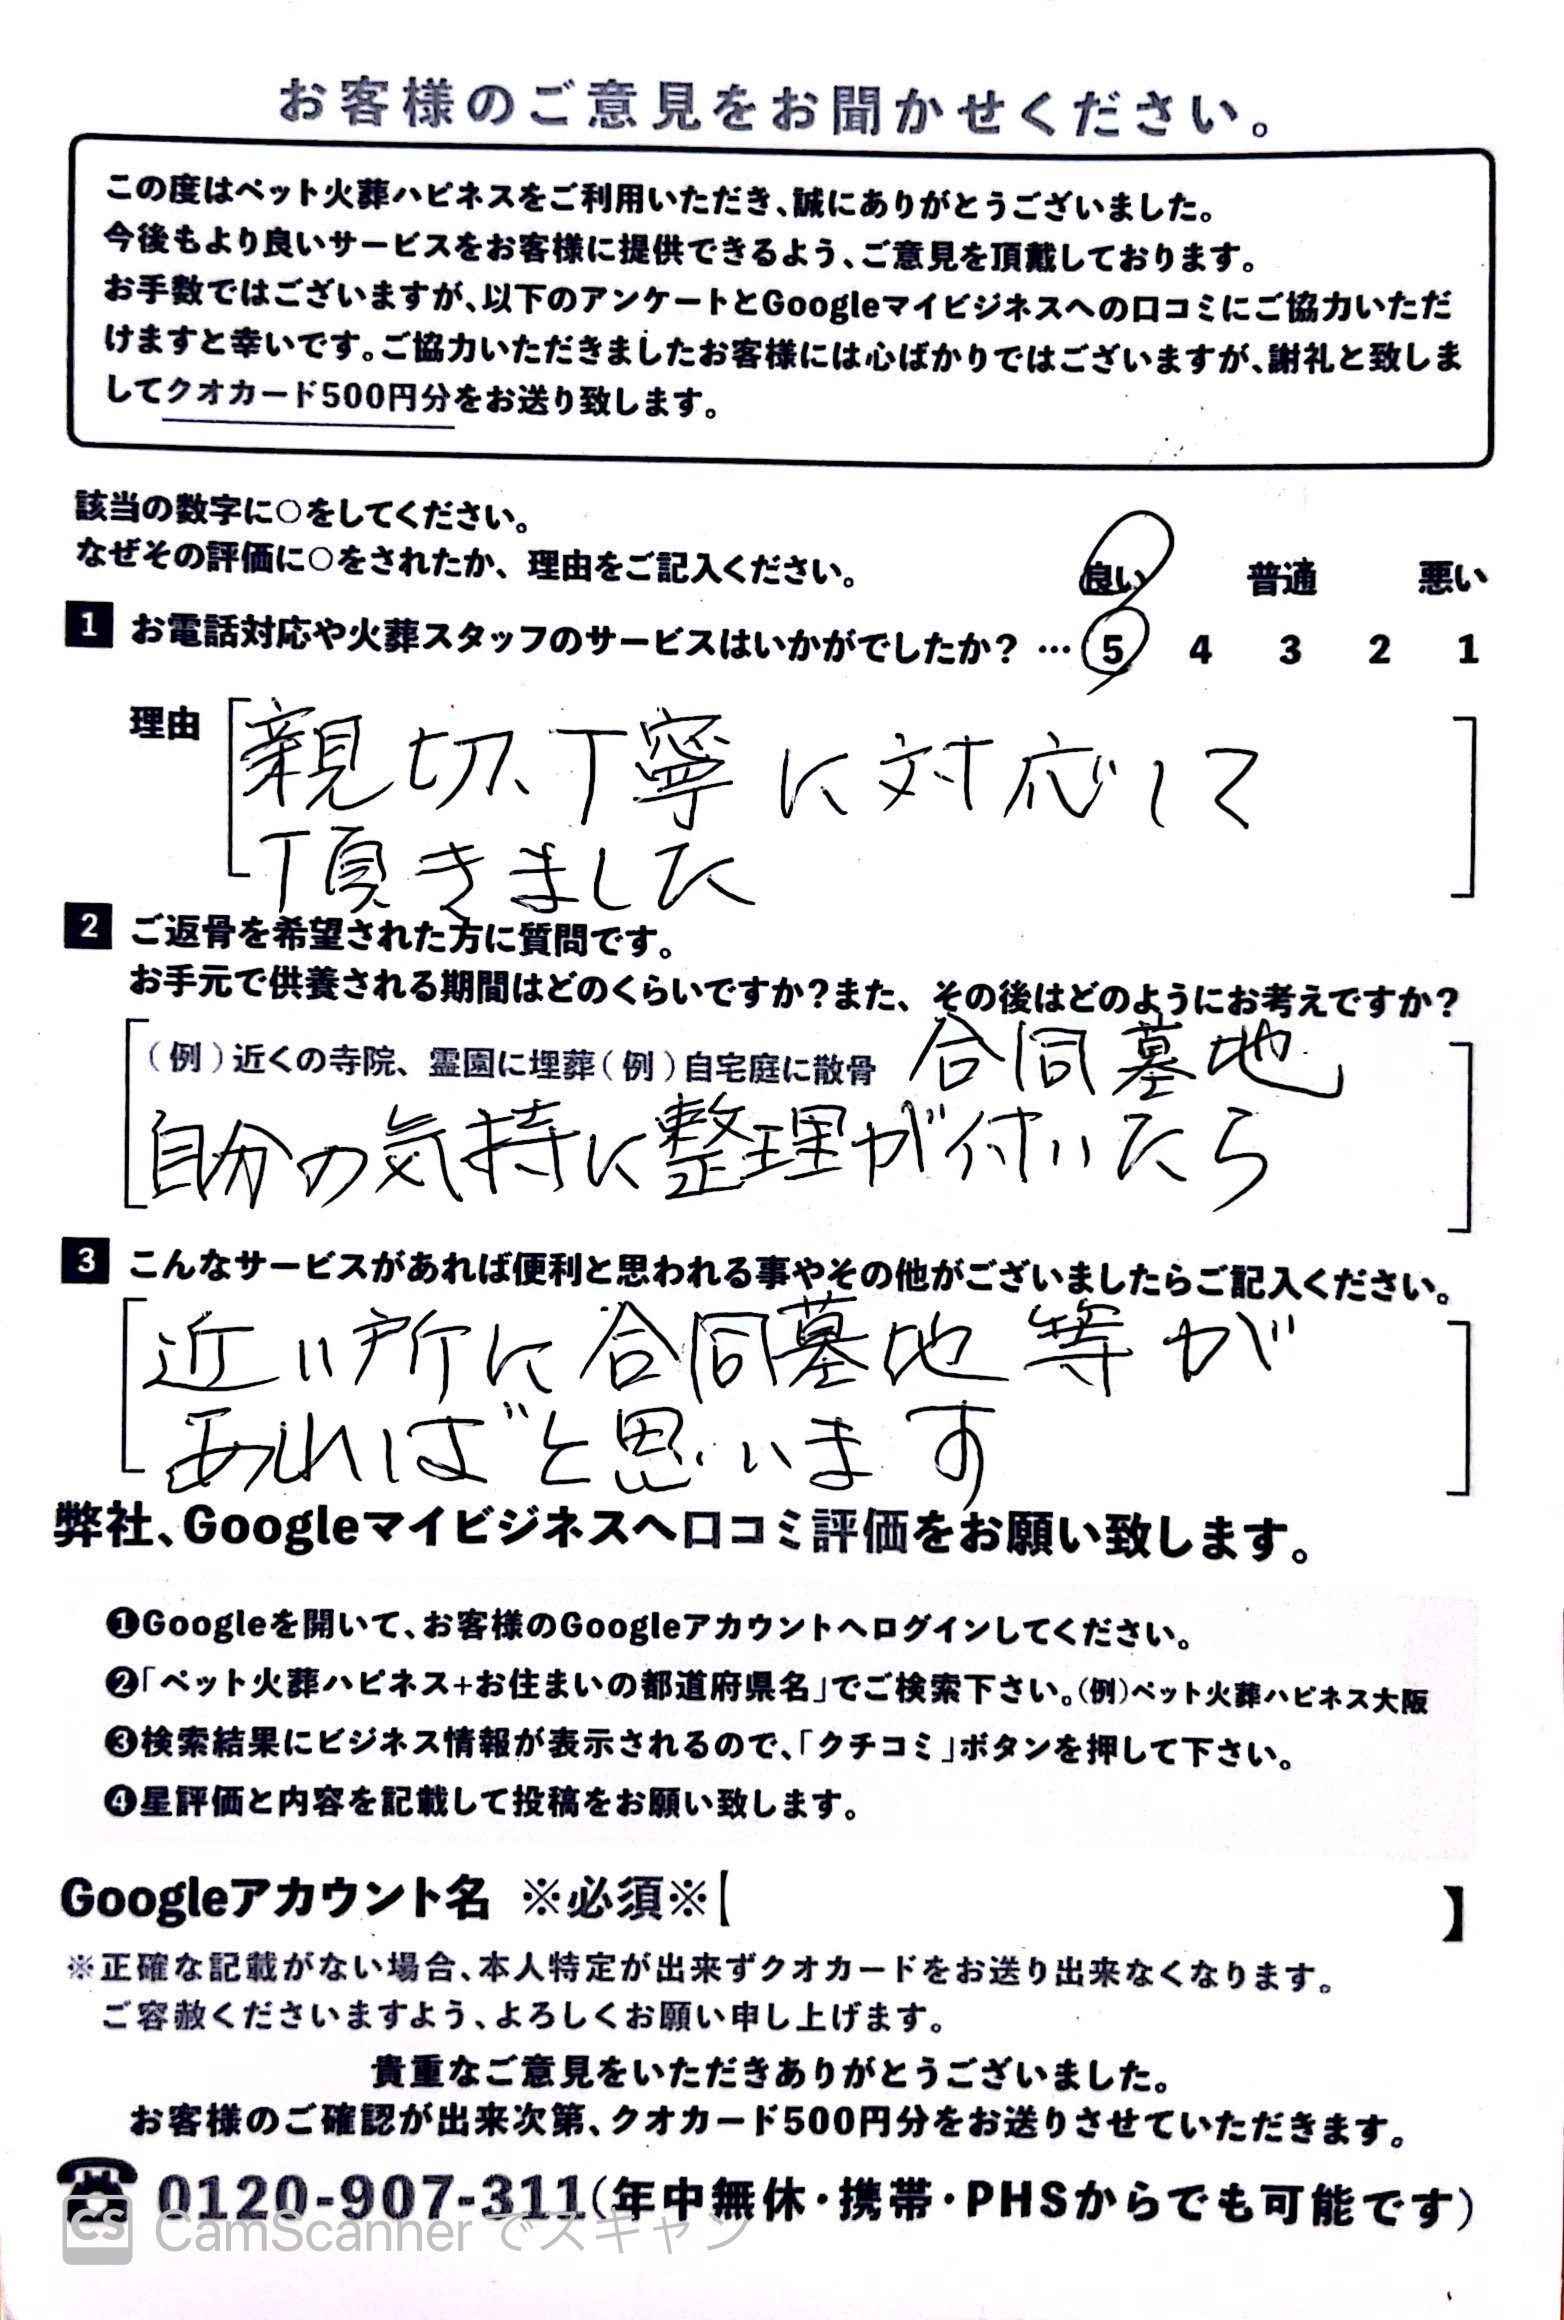 お客様のご意見をお聞かせください。
この度はペット火葬ハピネスをご利用いただき、誠にありがとうございました。
今後もより良いサービスをお客様に提供できるよう、ご意見を頂戴しております。
お手数ではございますが、以下のアンケートとGoogleマイビジネスへの口コミにご協力いただ
けますと幸いです。ご協力いただきましたお客様には心ばかりではございますが、謝礼と致しま
してクオカード500円分をお送り致します。
該当の数字に○をしてください。
なぜその評価に○をされたか、理由をご記入ください。
良い 普通 悪い
1 お電話対応や火葬スタッフのサービスはいかがでしたか? … 5 4 3 2 1
理由 [親切、丁寧に対応して
頂きました]
2 ご返骨を希望された方に質問です。
お手元で供養される期間はどのくらいですか?また、その後はどのようにお考えですか?
[(例)近くの寺院、霊園に埋葬(例)自宅庭に散骨 合同墓地
自分の気持に整理が付いたら]
3 こんなサービスがあれば便利と思われる事やその他がございましたらご記入ください。
[近い所に合同墓地等が
あればと思います]
弊社、Googleマイビジネスへ口コミ評価をお願い致します。
❶Googleを開いて、お客様のGoogleアカウントへログインしてください。
❷「ペット火葬ハピネス+お住まいの都道府県名」でご検索下さい。(例)ペット火葬ハピネス大阪
❸検索結果にビジネス情報が表示されるので、「クチコミ」ボタンを押して下さい。
❹星評価と内容を記載して投稿をお願い致します。
Googleアカウント名 ※必須※【 】
※正確な記載がない場合、本人特定が出来ずクオカードをお送り出来なくなります。
ご容赦くださいますよう、よろしくお願い申し上げます。
貴重なご意見をいただきありがとうございました。
お客様のご確認が出来次第、クオカード500円分をお送りさせていただきます。
☎ 0120-907-311(年中無休・携帯・PHSからでも可能です)
CS CamScanner でスキャン